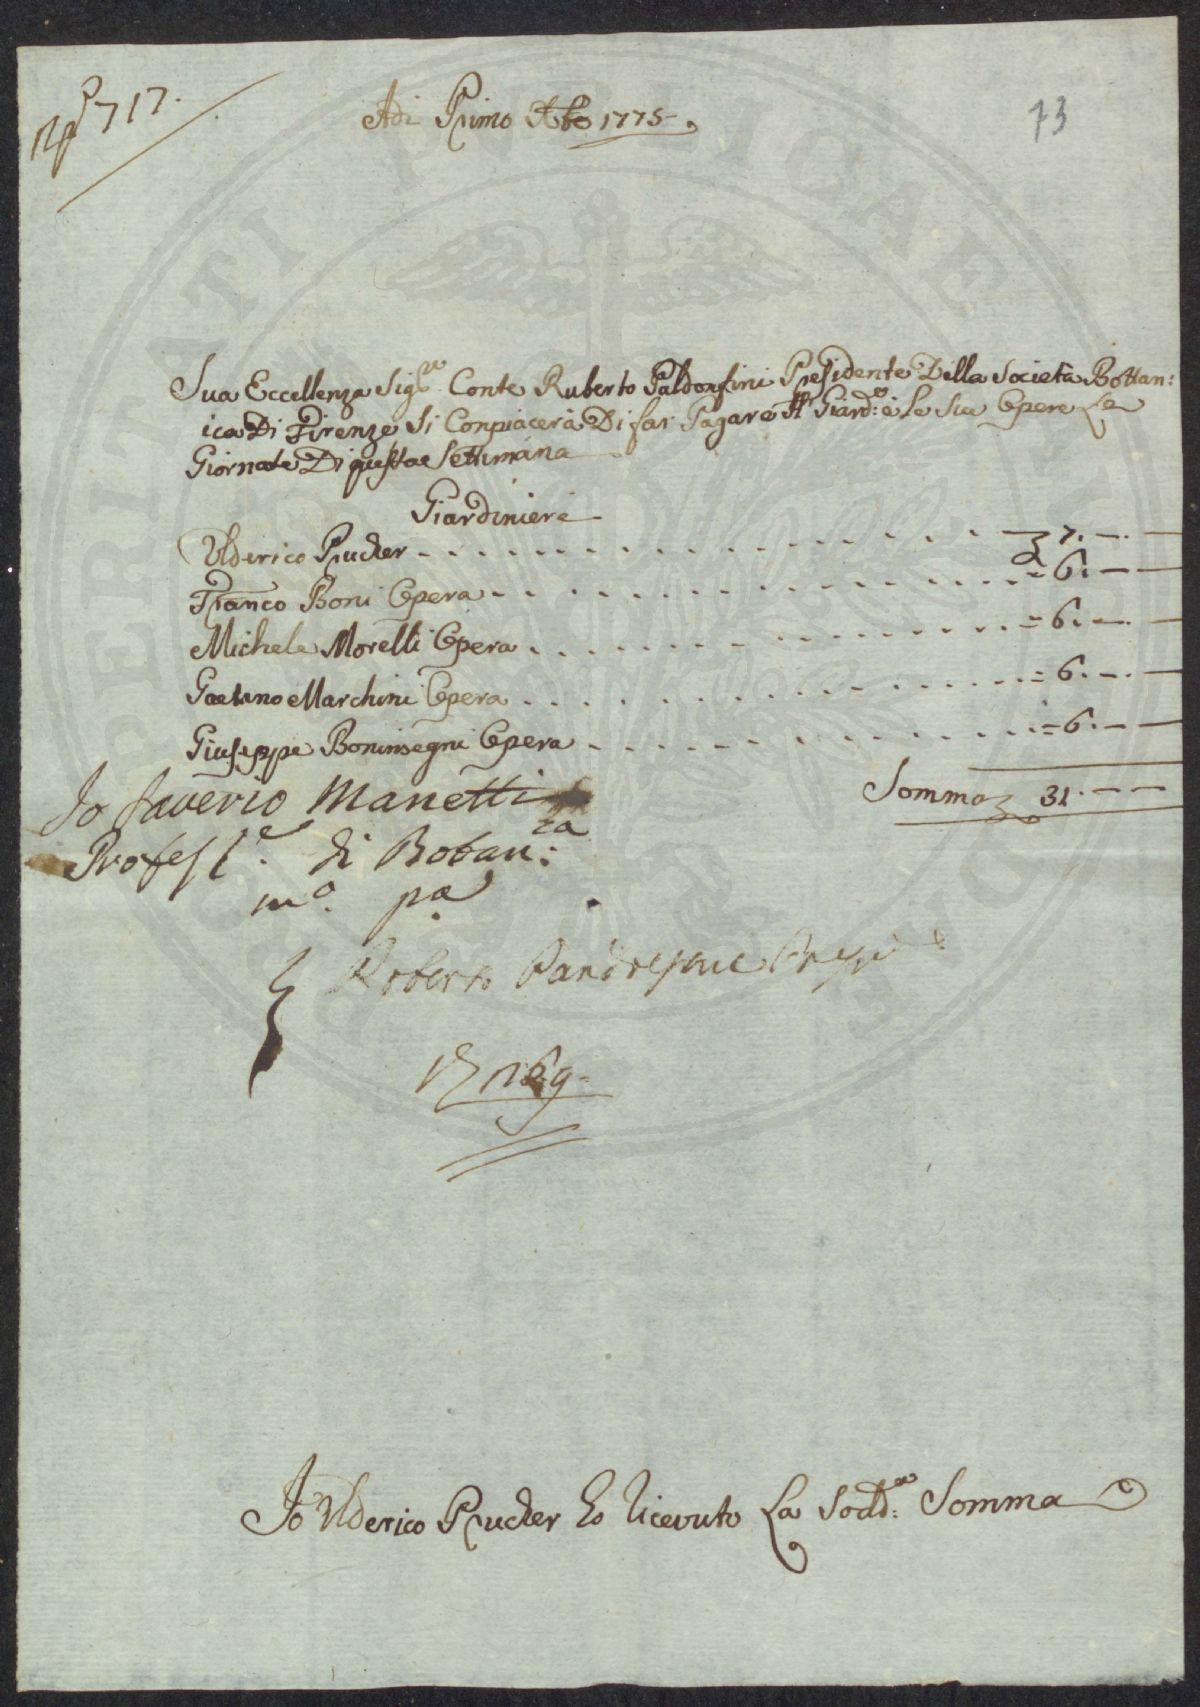 717.
73
Adi Primo Abĕ 1775
Sua Eccellenza Sig:re Conte Ruberto Paldonfini Presidente Della Società Bottan:
ica Di Firenze Si Conpiacerà Di far Pagare Al Giard:o e Le Sua Opere La
Giornate Di questa Settimana
Giardiniere
Ulderico Prucker - - - - - - 7. — .
Franco Boni Opera - - - - - - = 6. — .
Michele Morelli Opera - - - - - - = 6. — .
Gaetano Marchini Opera - - - - - - = 6. — .
Giuseppe Boninsegni Opera - - - - - - = 6. — .
Somma 31. — —
Io Saverio Manetti
Profess:e di Botan:ca
mo. pa
Roberto Pandolfini
169
Io Ulderico Prucker Ho Ricevuto La Sodd:a Somma